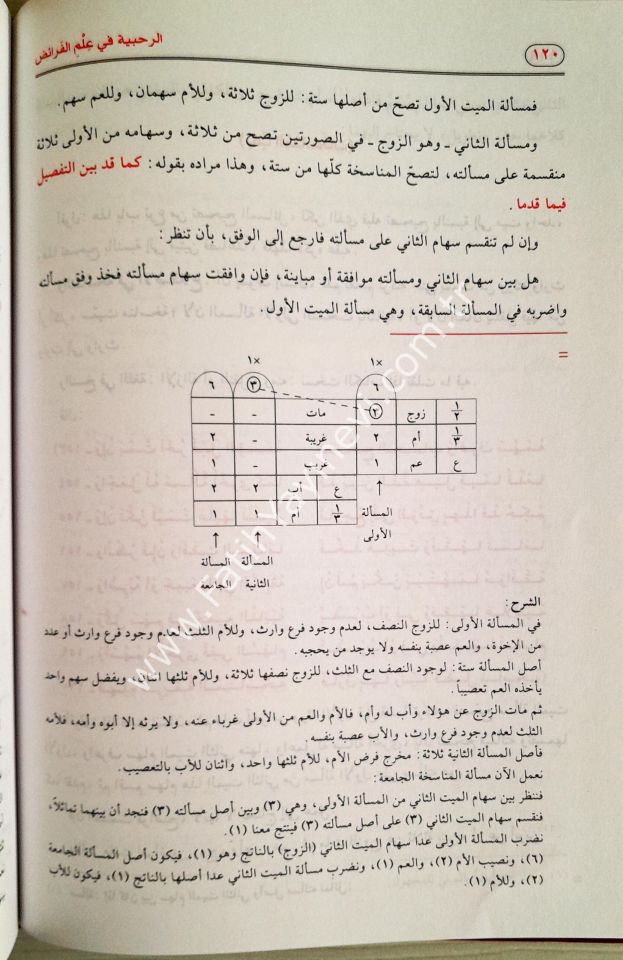 ١٢٠
الرحبية في عِلْمِ الفَرائض
فمسألة الميت الأول تصحّ من أصلها ستة: للزوج ثلاثة، وللأم سهمان، وللعم سهم.
ومسألة الثاني - وهو الزوج - في الصورتين تصح من ثلاثة، وسهامه من الأولى ثلاثة
منقسمة على مسألته، لتصحّ المناسخة كلّها من ستة، وهذا مراده بقوله: كما قد بين التفصيل
فيما قدما.
وإن لم تنقسم سهام الثاني على مسألته فارجع إلى الوفق، بأن تنظر:
هل بين سهام الثاني ومسألته موافقة أو مباينة، فإن وافقت سهام مسألته فخذ وفق مسألته
واضربه في المسألة السابقة، وهي مسألة الميت الأول.
=
١× ١×
٦ ٣ ٦
١/٢ زوج ٣ مات - -
١/٣ أم ٢ غريبة - ٢
ع عم ١ غريب - ١
ع أب ٢ ٢
١/٣ أم ١ ١
المسألة الأولى
المسألة الثانية
المسألة الجامعة
الشرح:
في المسألة الأولى: للزوج النصف، لعدم وجود فرع وارث، وللأم الثلث لعدم وجود فرع وارث أو عدد
من الإخوة، والعم عصبة بنفسه ولا يوجد من يحجبه.
أصل المسألة ستة: لوجود النصف مع الثلث، للزوج نصفها ثلاثة، وللأم ثلثها اثنان، ويفضل سهم واحد
يأخذه العم تعصيباً.
ثم مات الزوج عن هؤلاء وأب له وأم، فالأم والعم من الأولى غرباء عنه، ولا يرثه إلا أبوه وأمه، فلأمه
الثلث لعدم وجود فرع وارث، والأب عصبة بنفسه.
فأصل المسألة الثانية ثلاثة: مخرج فرض الأم، للأم ثلثها واحد، واثنان للأب بالتعصيب.
نعمل الآن مسألة المناسخة الجامعة:
فننظر بين سهام الميت الثاني من المسألة الأولى، وهي (٣) وبين أصل مسألته (٣) فنجد أن بينهما تماثلاً،
فنقسم سهام الميت الثاني (٣) على أصل مسألته (٣) فينتج معنا (١).
نضرب المسألة الأولى عدا سهام الميت الثاني (الزوج) بالناتج وهو (١)، فيكون أصل المسألة الجامعة
(٦)، ونصيب الأم (٢)، والعم (١)، ونضرب مسألة الميت الثاني عدا أصلها بالناتج (١)، فيكون للأب
(٢)، وللأم (١).
www.FatihYayinevi.com.tr